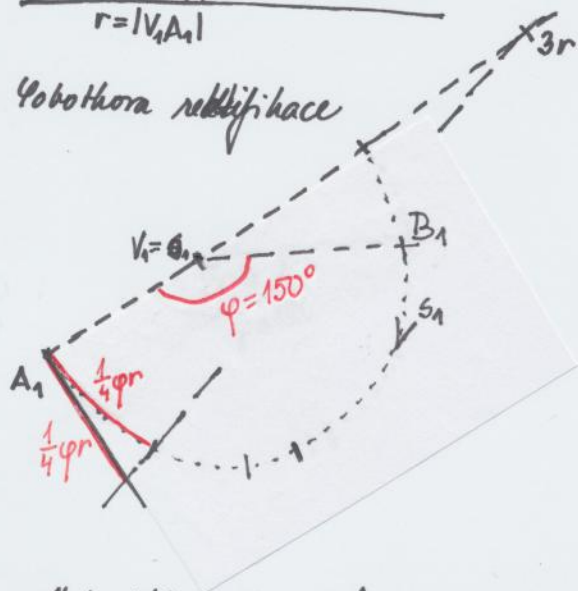 r=|V₁A₁|
3r
Sobotkova rektifikace
V₁=O₁
B₁
φ=150°
s₁
A₁
¼φr
¼φr